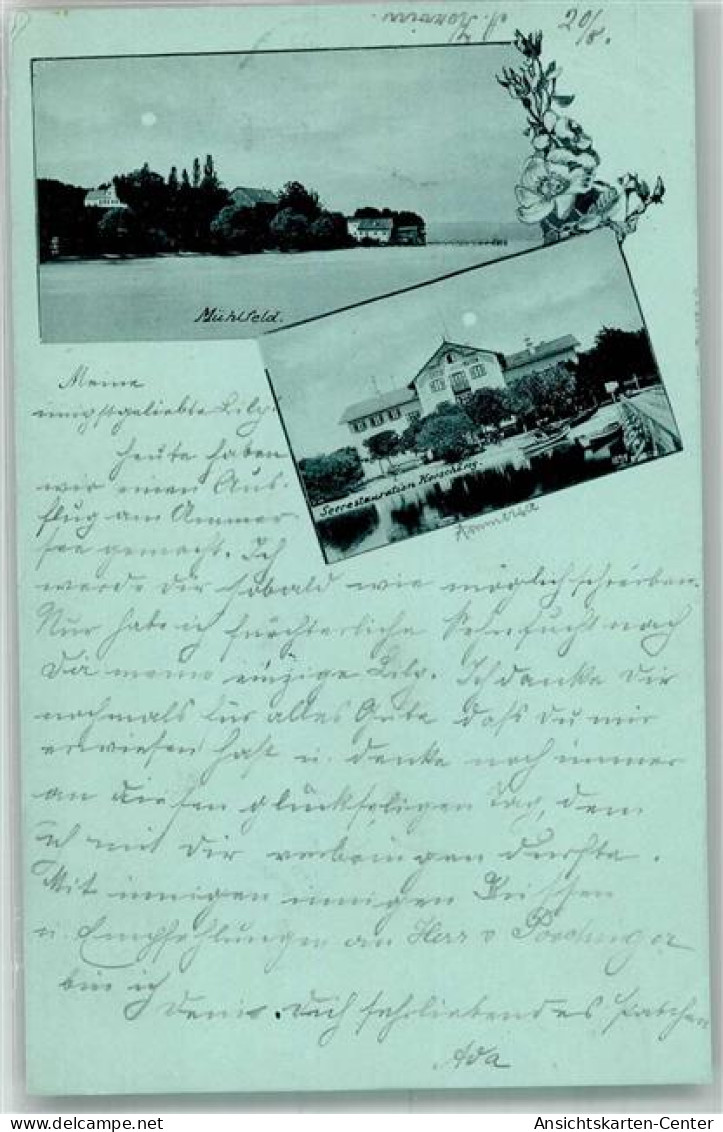 20/8.
Mühlfeld.
Seerestauration Herrsching.
Ammersee
Meine
innigstgeliebte Lily.
Heute haben
wir einen Aus-
flug am Ammer-
see gemacht. Ich
werde dir sobald wie möglich schreiben.
Nur habe ich fürchterliche Sehnsucht nach
Dir meine einzige Lily. Ich danke Dir
nochmals für alles Gute dass du mir
erwiesen hast u. denke noch immer
an diesen glückseligen Tag, den
ich mit Dir verbringen durfte.
Mit innigen innigen Küssen
u. Empfehlungen an Herr v
bin ich
Dein Dich sehr liebendes
Ada
Ansichtskarten-Center